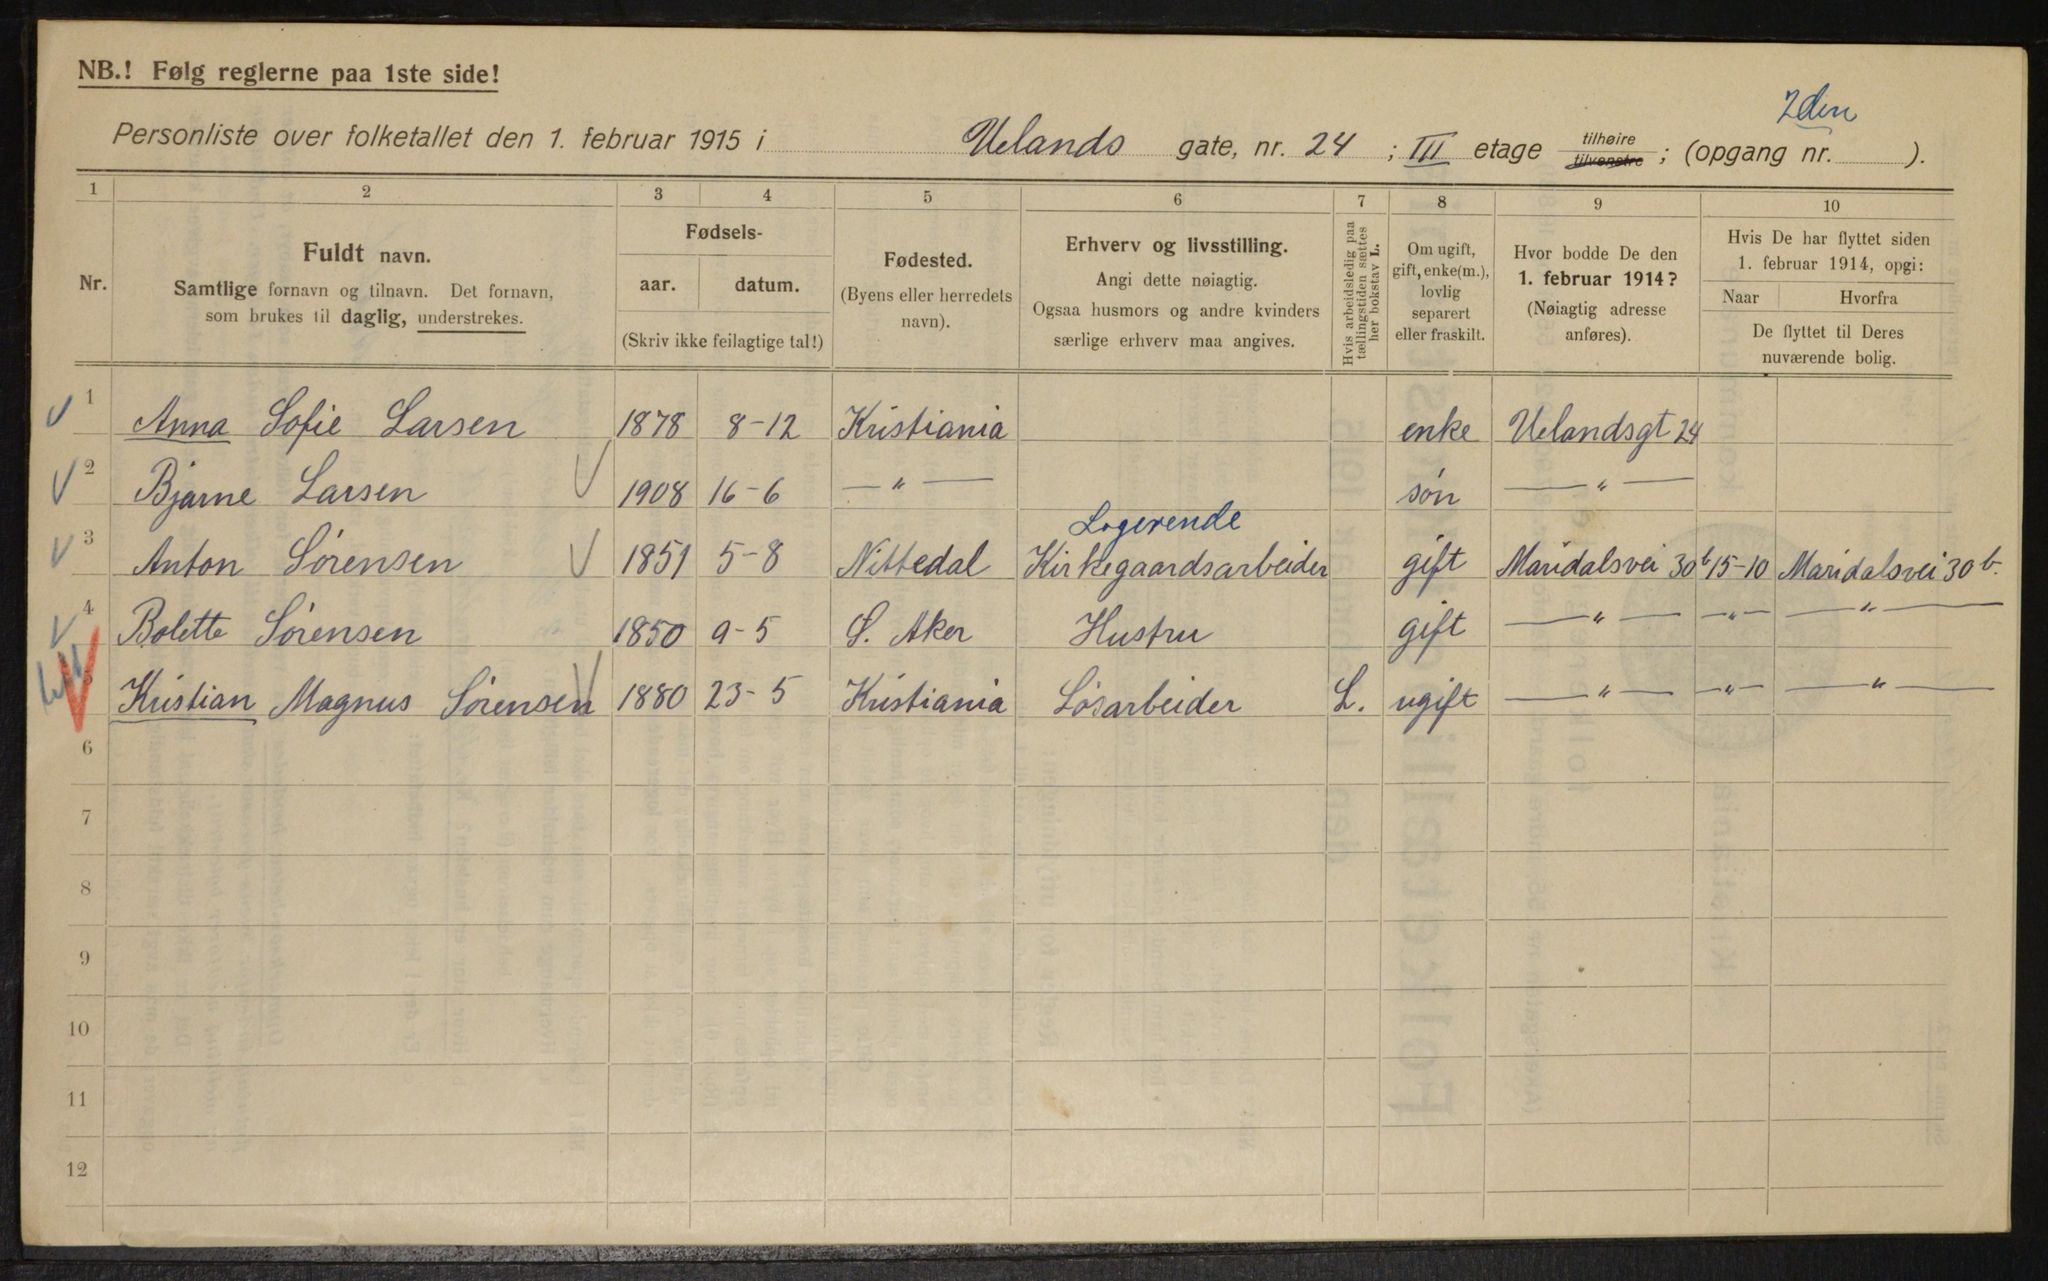 NB.! Følg reglerne paa 1ste side!
2den
Personliste over folketallet den 1. februar 1915 i Uelands gate, nr. 24 ; III etage tilhøire tilvenstre ; (opgang nr. ).
1 2 3 4 5 6 7 8 9 10
Nr.
Fuldt navn.
Samtlige fornavn og tilnavn. Det fornavn,
som brukes til daglig, understrekes.
Fødsels-
aar. datum.
(Skriv ikke feilagtige tal!)
Fødested.
(Byens eller herredets
navn).
Erhverv og livsstilling.
Angi dette nøiagtig.
Ogsaa husmors og andre kvinders
særlige erhverv maa angives.
Hvis arbeidsledig paa
tællingstiden sættes
her bokstav L.
Om ugift,
gift, enke(m.),
lovlig
separert
eller fraskilt.
Hvor bodde De den
1. februar 1914?
(Nøiagtig adresse
anføres).
Hvis De har flyttet siden
1. februar 1914, opgi:
Naar Hvorfra
De flyttet til Deres
nuværende bolig.
1 Anna Sofie Larsen 1878 8-12 Kristiania enke Uelandsgt 24
2 Bjarne Larsen 1908 16-6 — " — søn — " —
Logerende
3 Anton Sørensen 1851 5-8 Nittedal Kirkegaardsarbeider gift Maridalsvei 30 b 15-10 Maridalsvei 30 b.
4 Bolette Sørensen 1850 9-5 S. Aker Hustru gift — " — — " — — " —
5 Kristian Magnus Sørensen 1880 23-5 Kristiania Løsarbeider L. ugift — " — — " — — " —
6
7
8
9
10
11
12